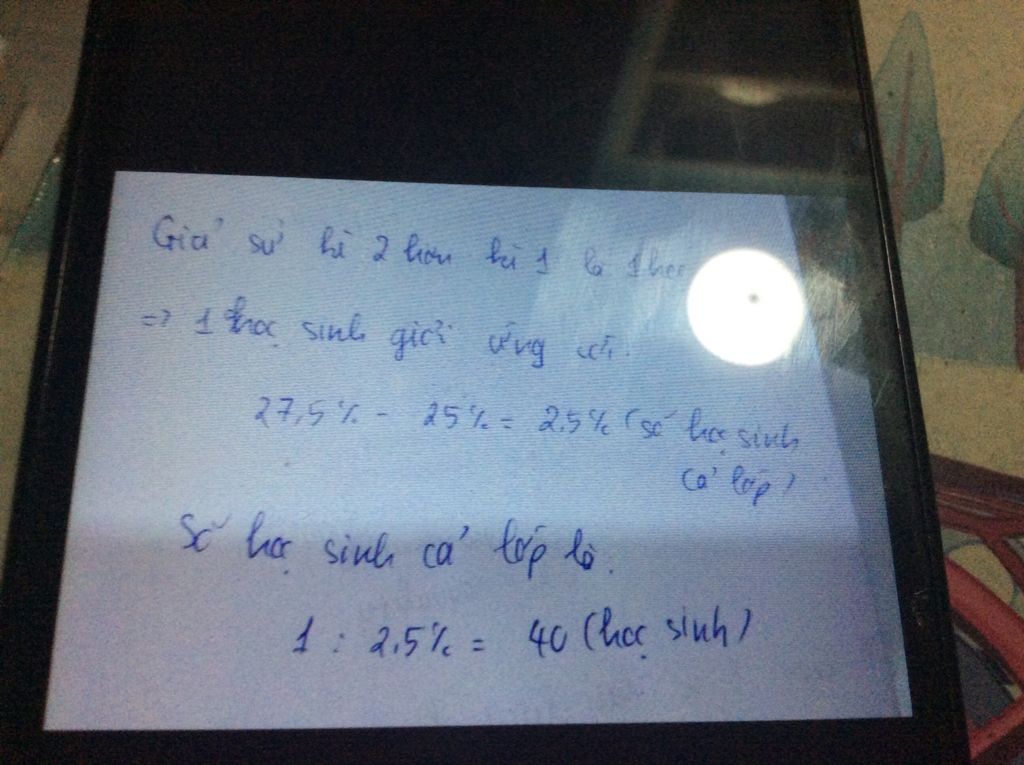 Giả sử kì 2 hơn kì 1 là 1 học
=> 1 học sinh giỏi ứng với.
27,5% - 25% = 2,5% (số học sinh
cả lớp)
Số học sinh cả lớp là.
1 : 2,5% = 40 (học sinh)